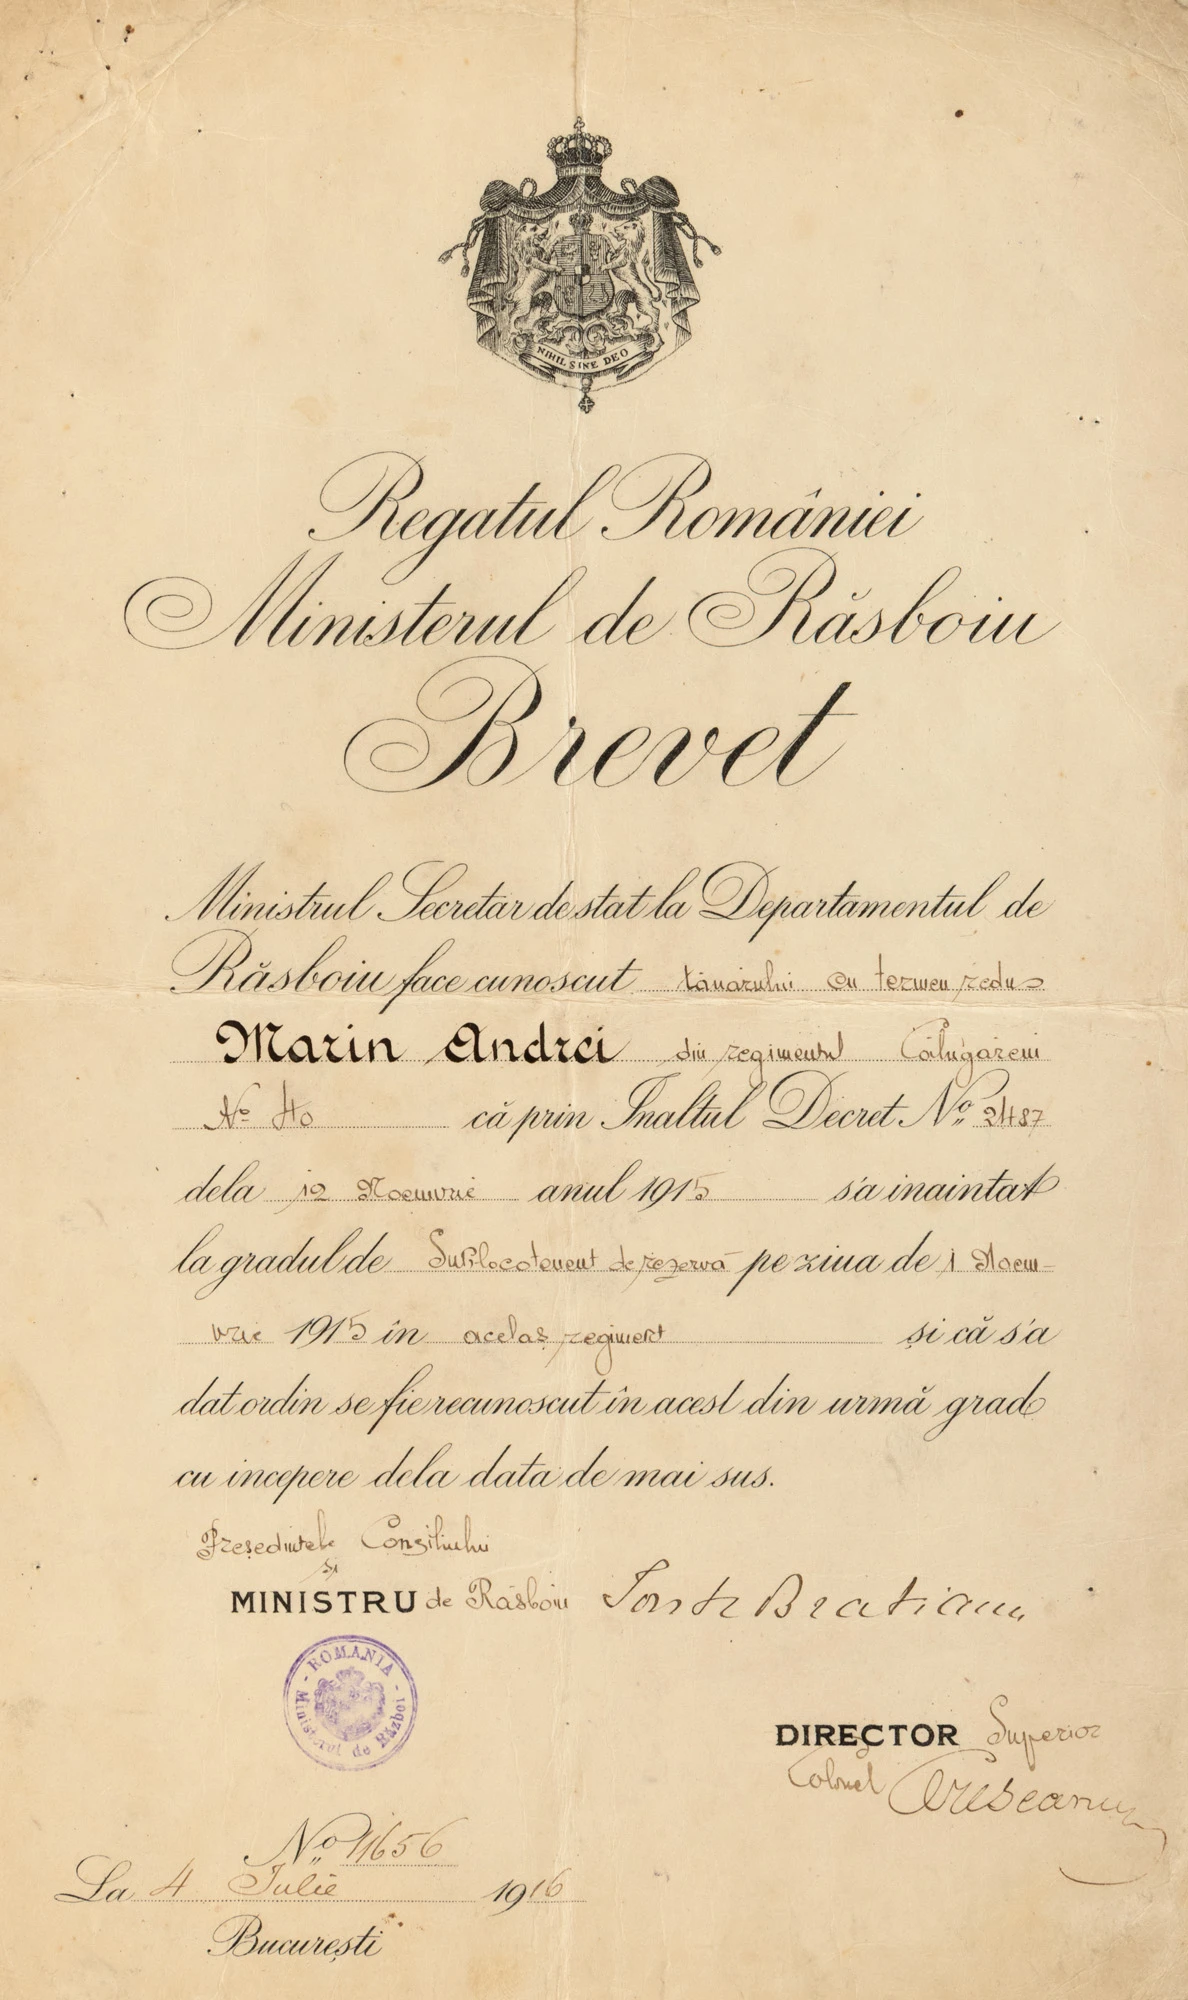 NIHIL SINE DEO
Regatul României
Ministerul de Răsboiu
Brevet
Ministrul Secretar de stat la Departamentul de
Răsboiu face cunoscut tânărului cu termen redus
Marin Andrei din regimentul Călugăreni
No 40 că prin Inaltul Decret No. 2487
dela 12 Noemvrie anul 1915 s'a inaintat
la gradul de Sublocotenent de rezervă pe ziua de 1 Noem-
vrie 1915 în acelaș regiment și că s'a
dat ordin se fie recunoscut în acest din urmă grad
cu incepere dela data de mai sus.
Președintele Consiliului
și
MINISTRU de Răsboiu Bratianu
ROMANIA
Ministerul de Război
DIRECTOR Superior
Colonel
No 11656
La 4 Iulie 1916
București